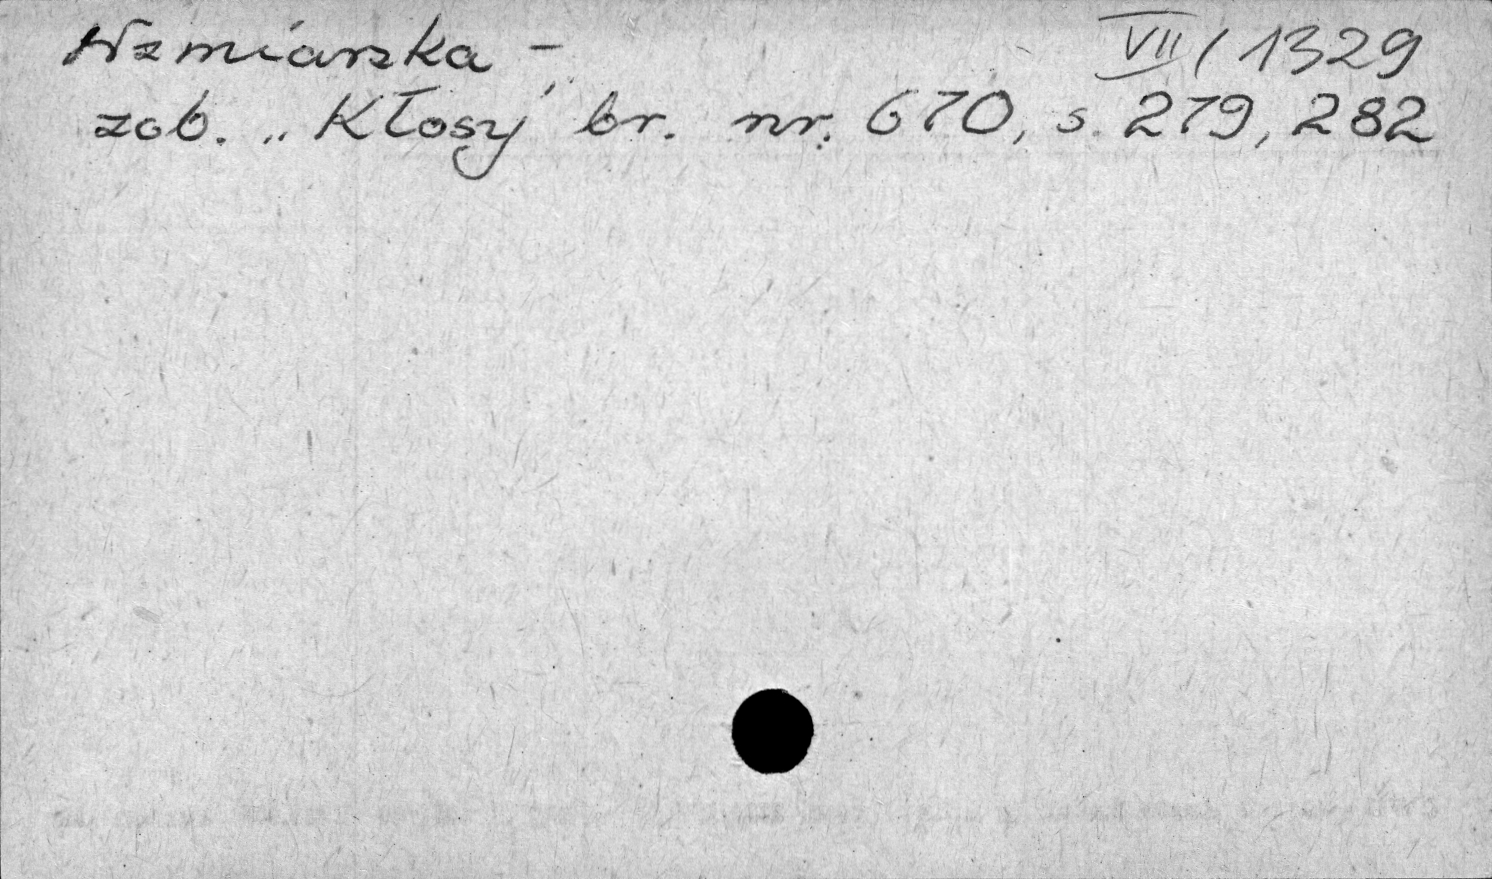 Wzmiarzka - VII/1329
zob. „Kłosy" br. nr. 670, s. 279, 282